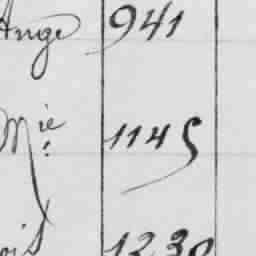 Ange 941
Mie 1145
1230